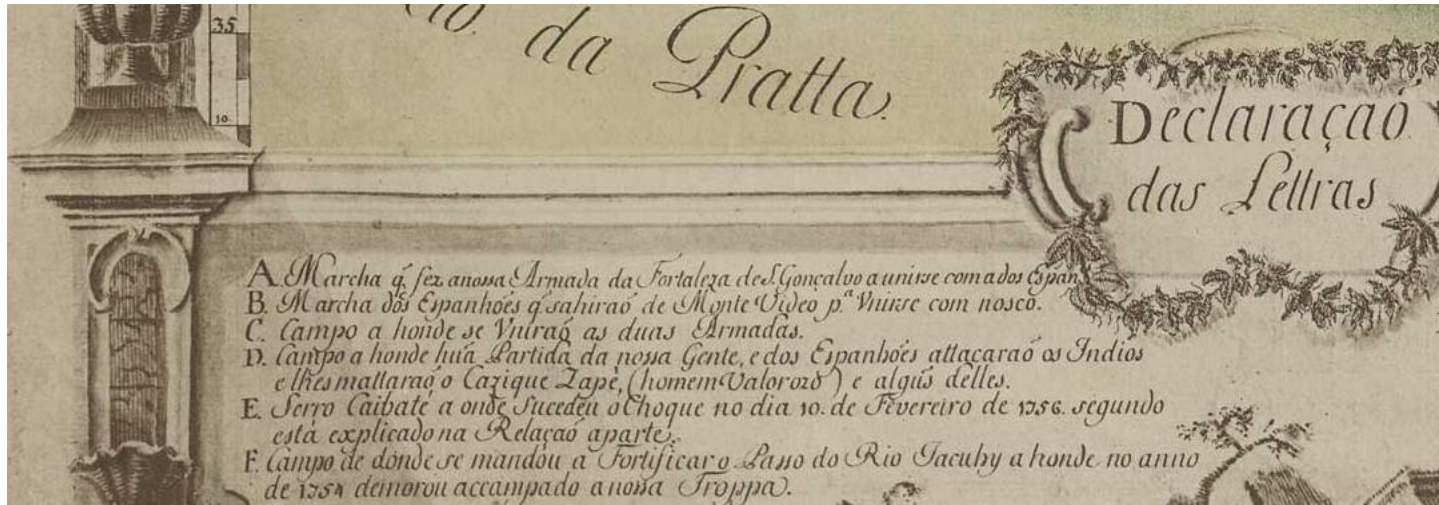 35
10
da Pratta.
Declaraçaõ
das Lettras
A. Marcha q́ fez a nossa Armada da Fortaleza de S. Gonçalvo a unirse com a dos Espan
B. Marcha dos Espanhóes q́ sahiraõ de Monte Video pª. Vnirse com noscõ.
C. Campo a honde se Vniraõ as duas Armadas.
D. Campo a honde huã Partida da nossa Gente, e dos Espanhóes attacaraõ os Indios
e lhes mattaraõ o Cazique Zapé, (homem Valorozo) e algũs delles.
E. Serro Caibaté a onde Sucedeu o Choque no dia 10. de Fevereiro de 1756. segundo
está explicado na Relaçaõ aparte.
F. Campo de donde se mandou a Fortificar o Passo do Rio Jacuhy a honde no anno
de 1754 demorou accampado a nossa Troppa.